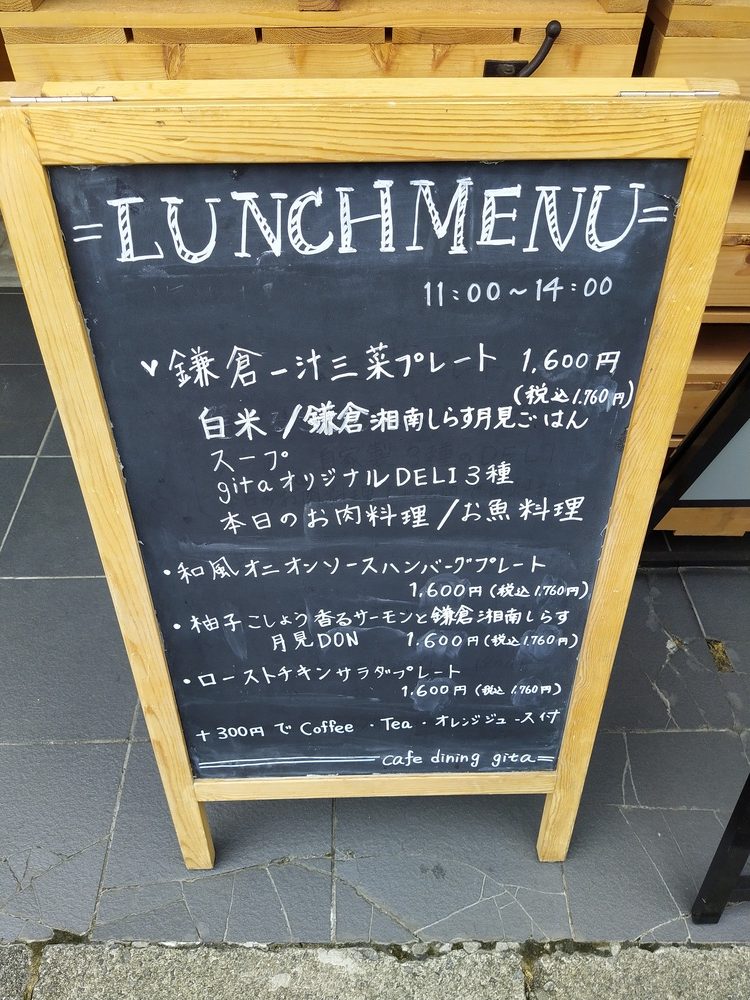 =LUNCH MENU=
11:00~14:00
♥鎌倉一汁三菜プレート 1,600円
(税込1,760円)
白米/鎌倉湘南しらす月見ごはん
スープ
gitaオリジナルDELI3種
本日のお肉料理/お魚料理
・和風オニオンソースハンバーグプレート
1,600円(税込1,760円)
・柚子こしょう香るサーモンと鎌倉湘南しらす
月見DON 1,600円(税込1,760円)
・ローストチキンサラダプレート
1,600円(税込1,760円)
+300円でCoffee・Tea・オレンジジュース付
cafe dining gita